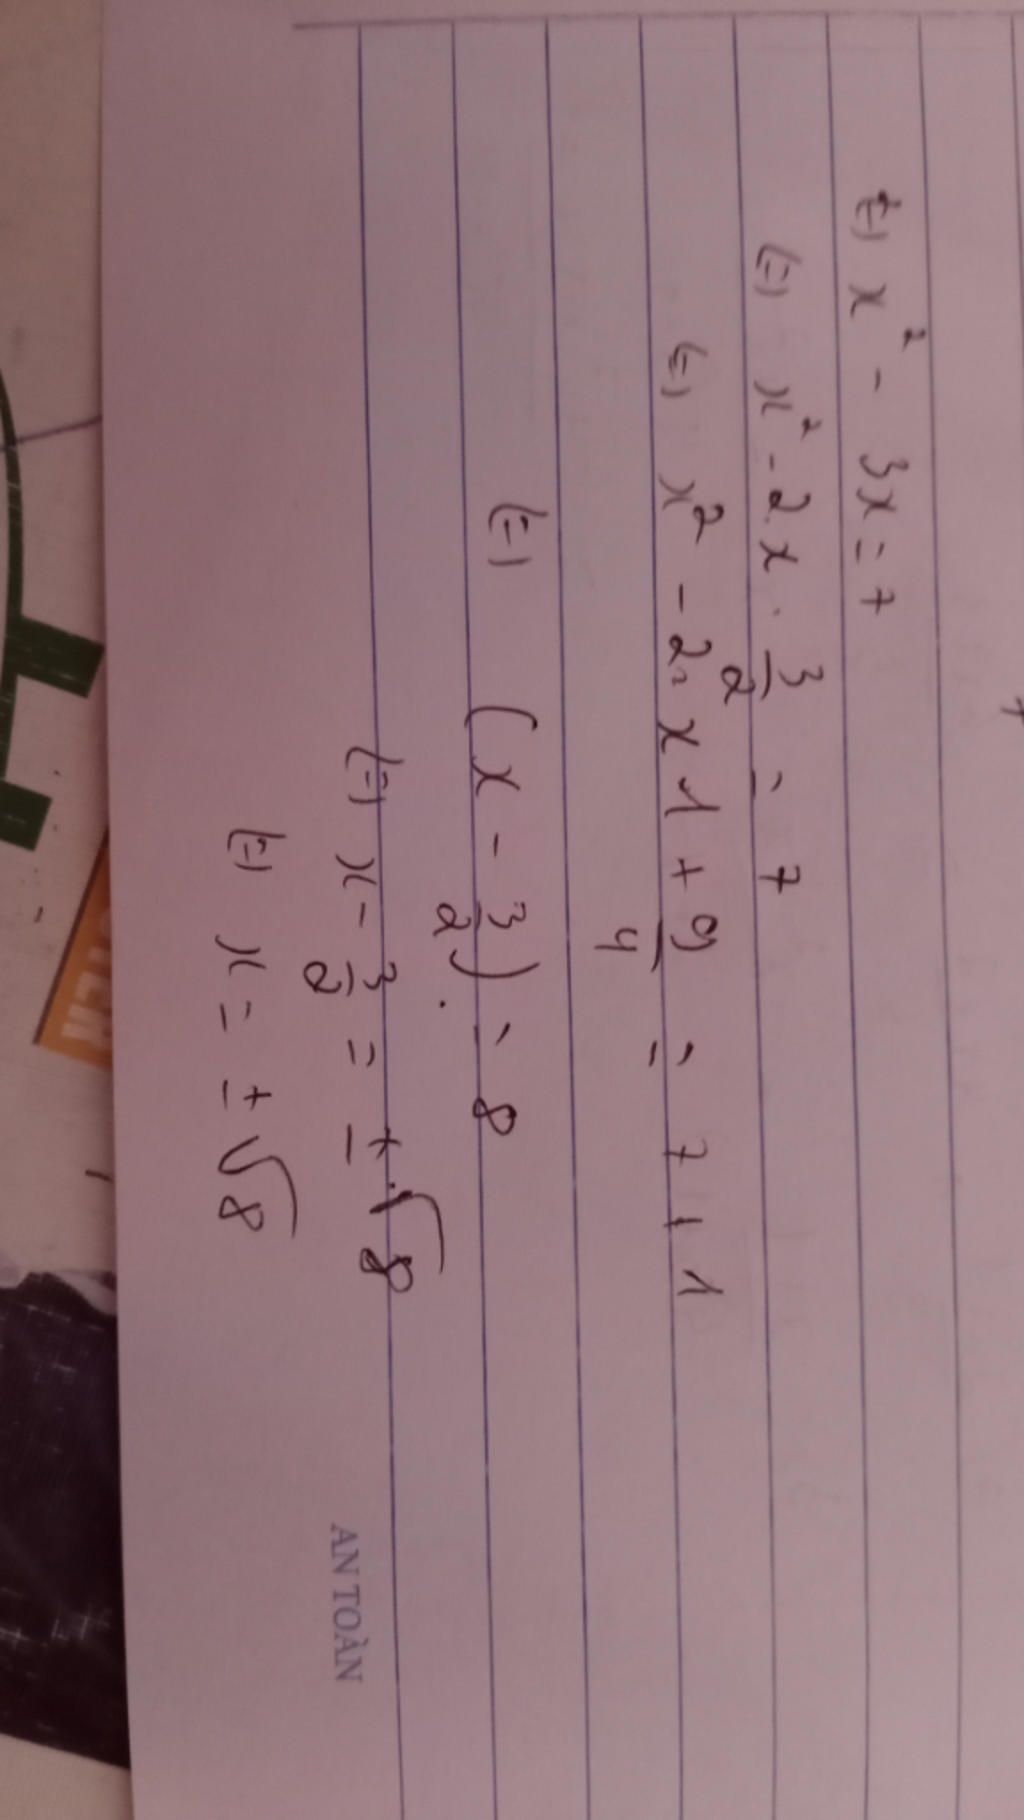 (=) x² - 3x = 7
(=) x² - 2.x . 3/2 = 7
(=) x² - 2.x 1 + 9/4 = 7 + 1
(=) (x - 3/2) = 8
(=) x - 3/2 = ± √8
(=) x = ± √8
AN TOÀN